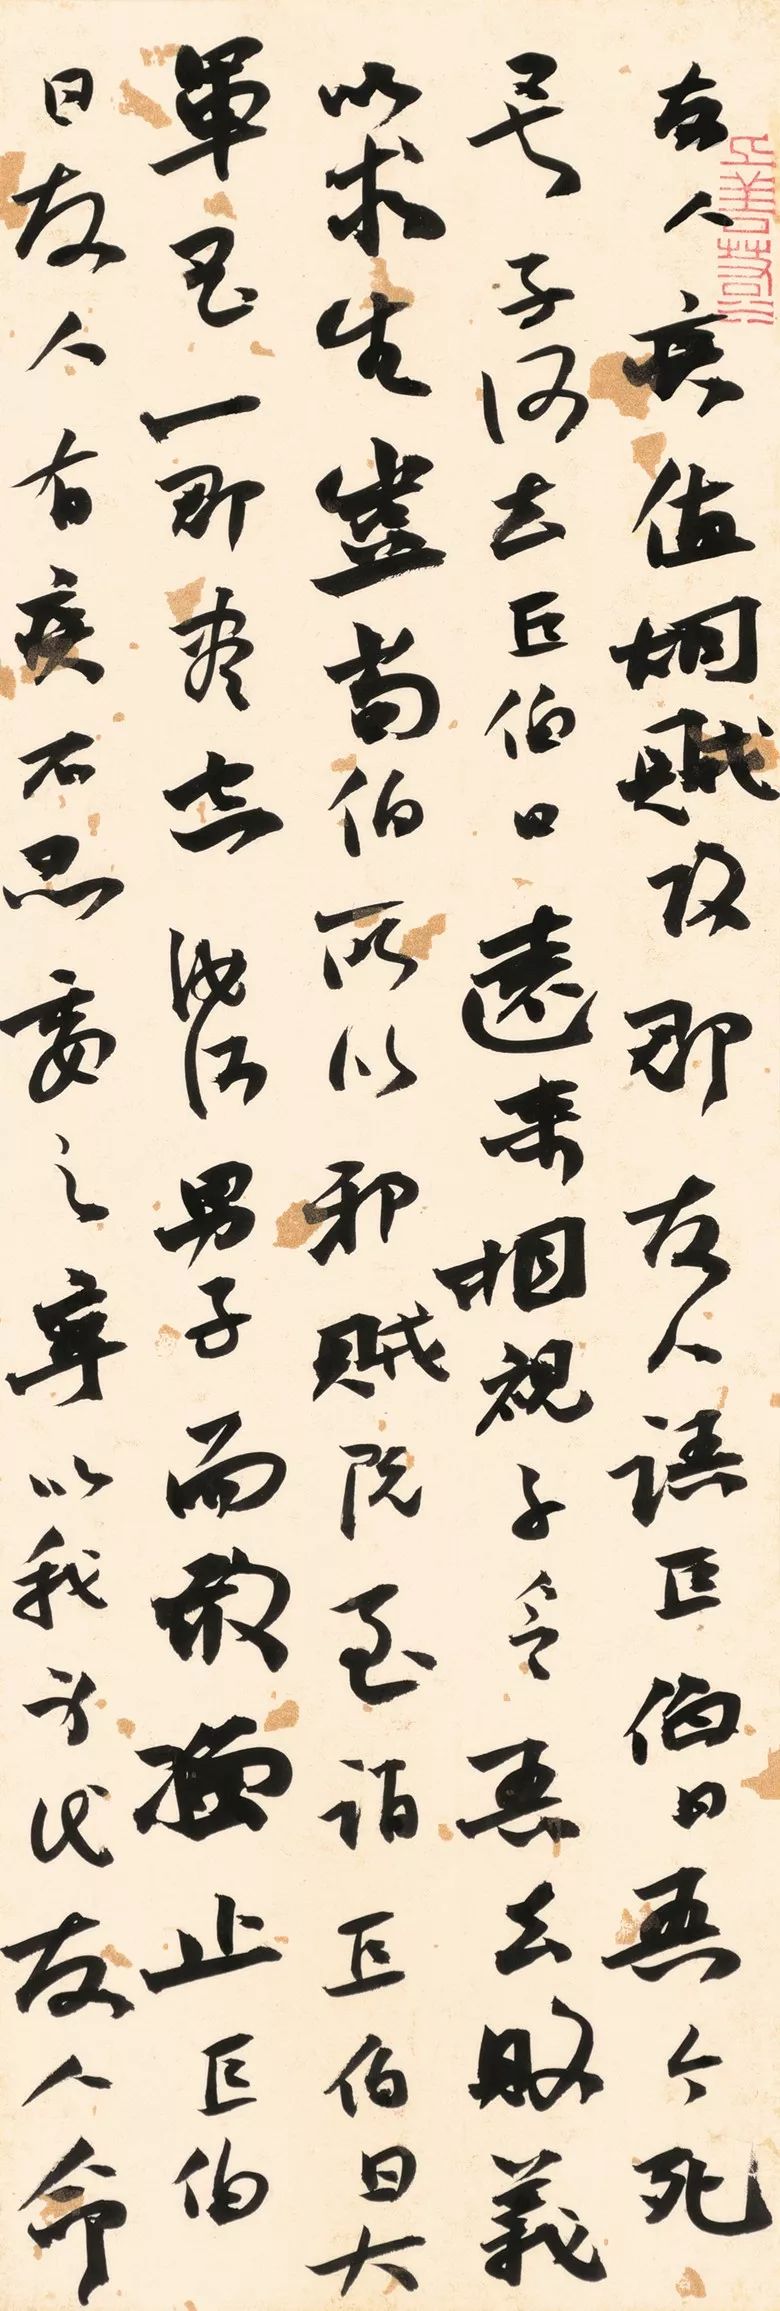 友人疾值胡賊攻郡友人語巨伯曰吾今死
矣子可去巨伯曰遠来相視子令吾去敗義
以求生豈荀伯所以邪賊既至謂巨伯曰大
軍至一郡盡空汝何男子而敢獨止巨伯
曰友人有疾不忍委之寧以我身代友人命